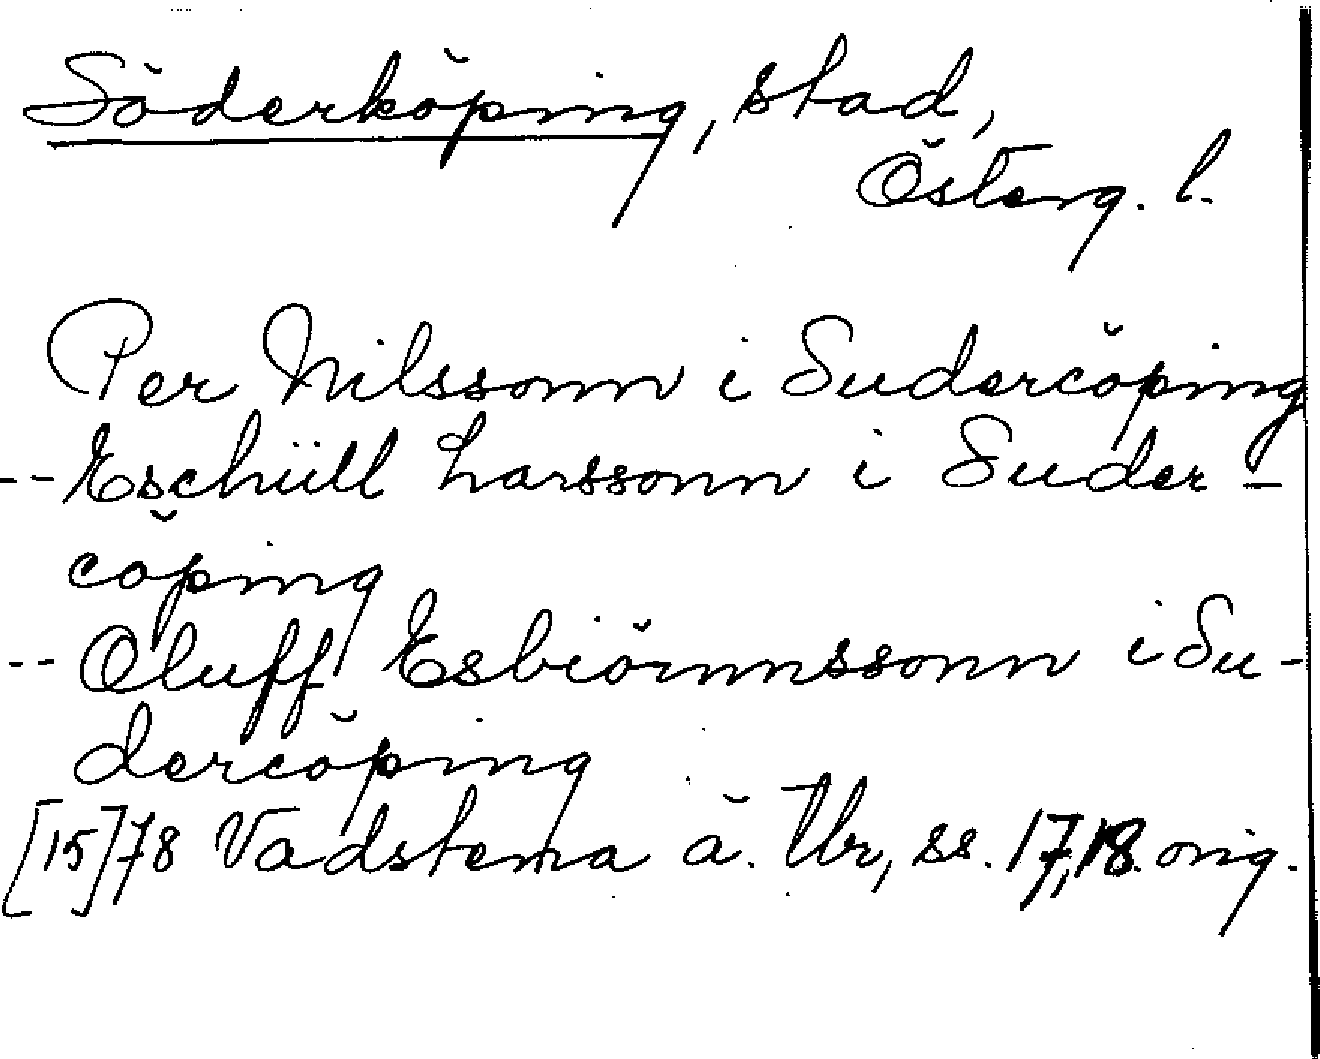 Söderköping, stad,
Österg. l.
Per Nilssonn i Sudercöping
-- Eschüll Larssonn i Suder-
cöping
-- Oluff Esbiörnnssonn i Su-
dercöping
[15]78 Vadstena ä. Ur, ss. 17,18. orig.